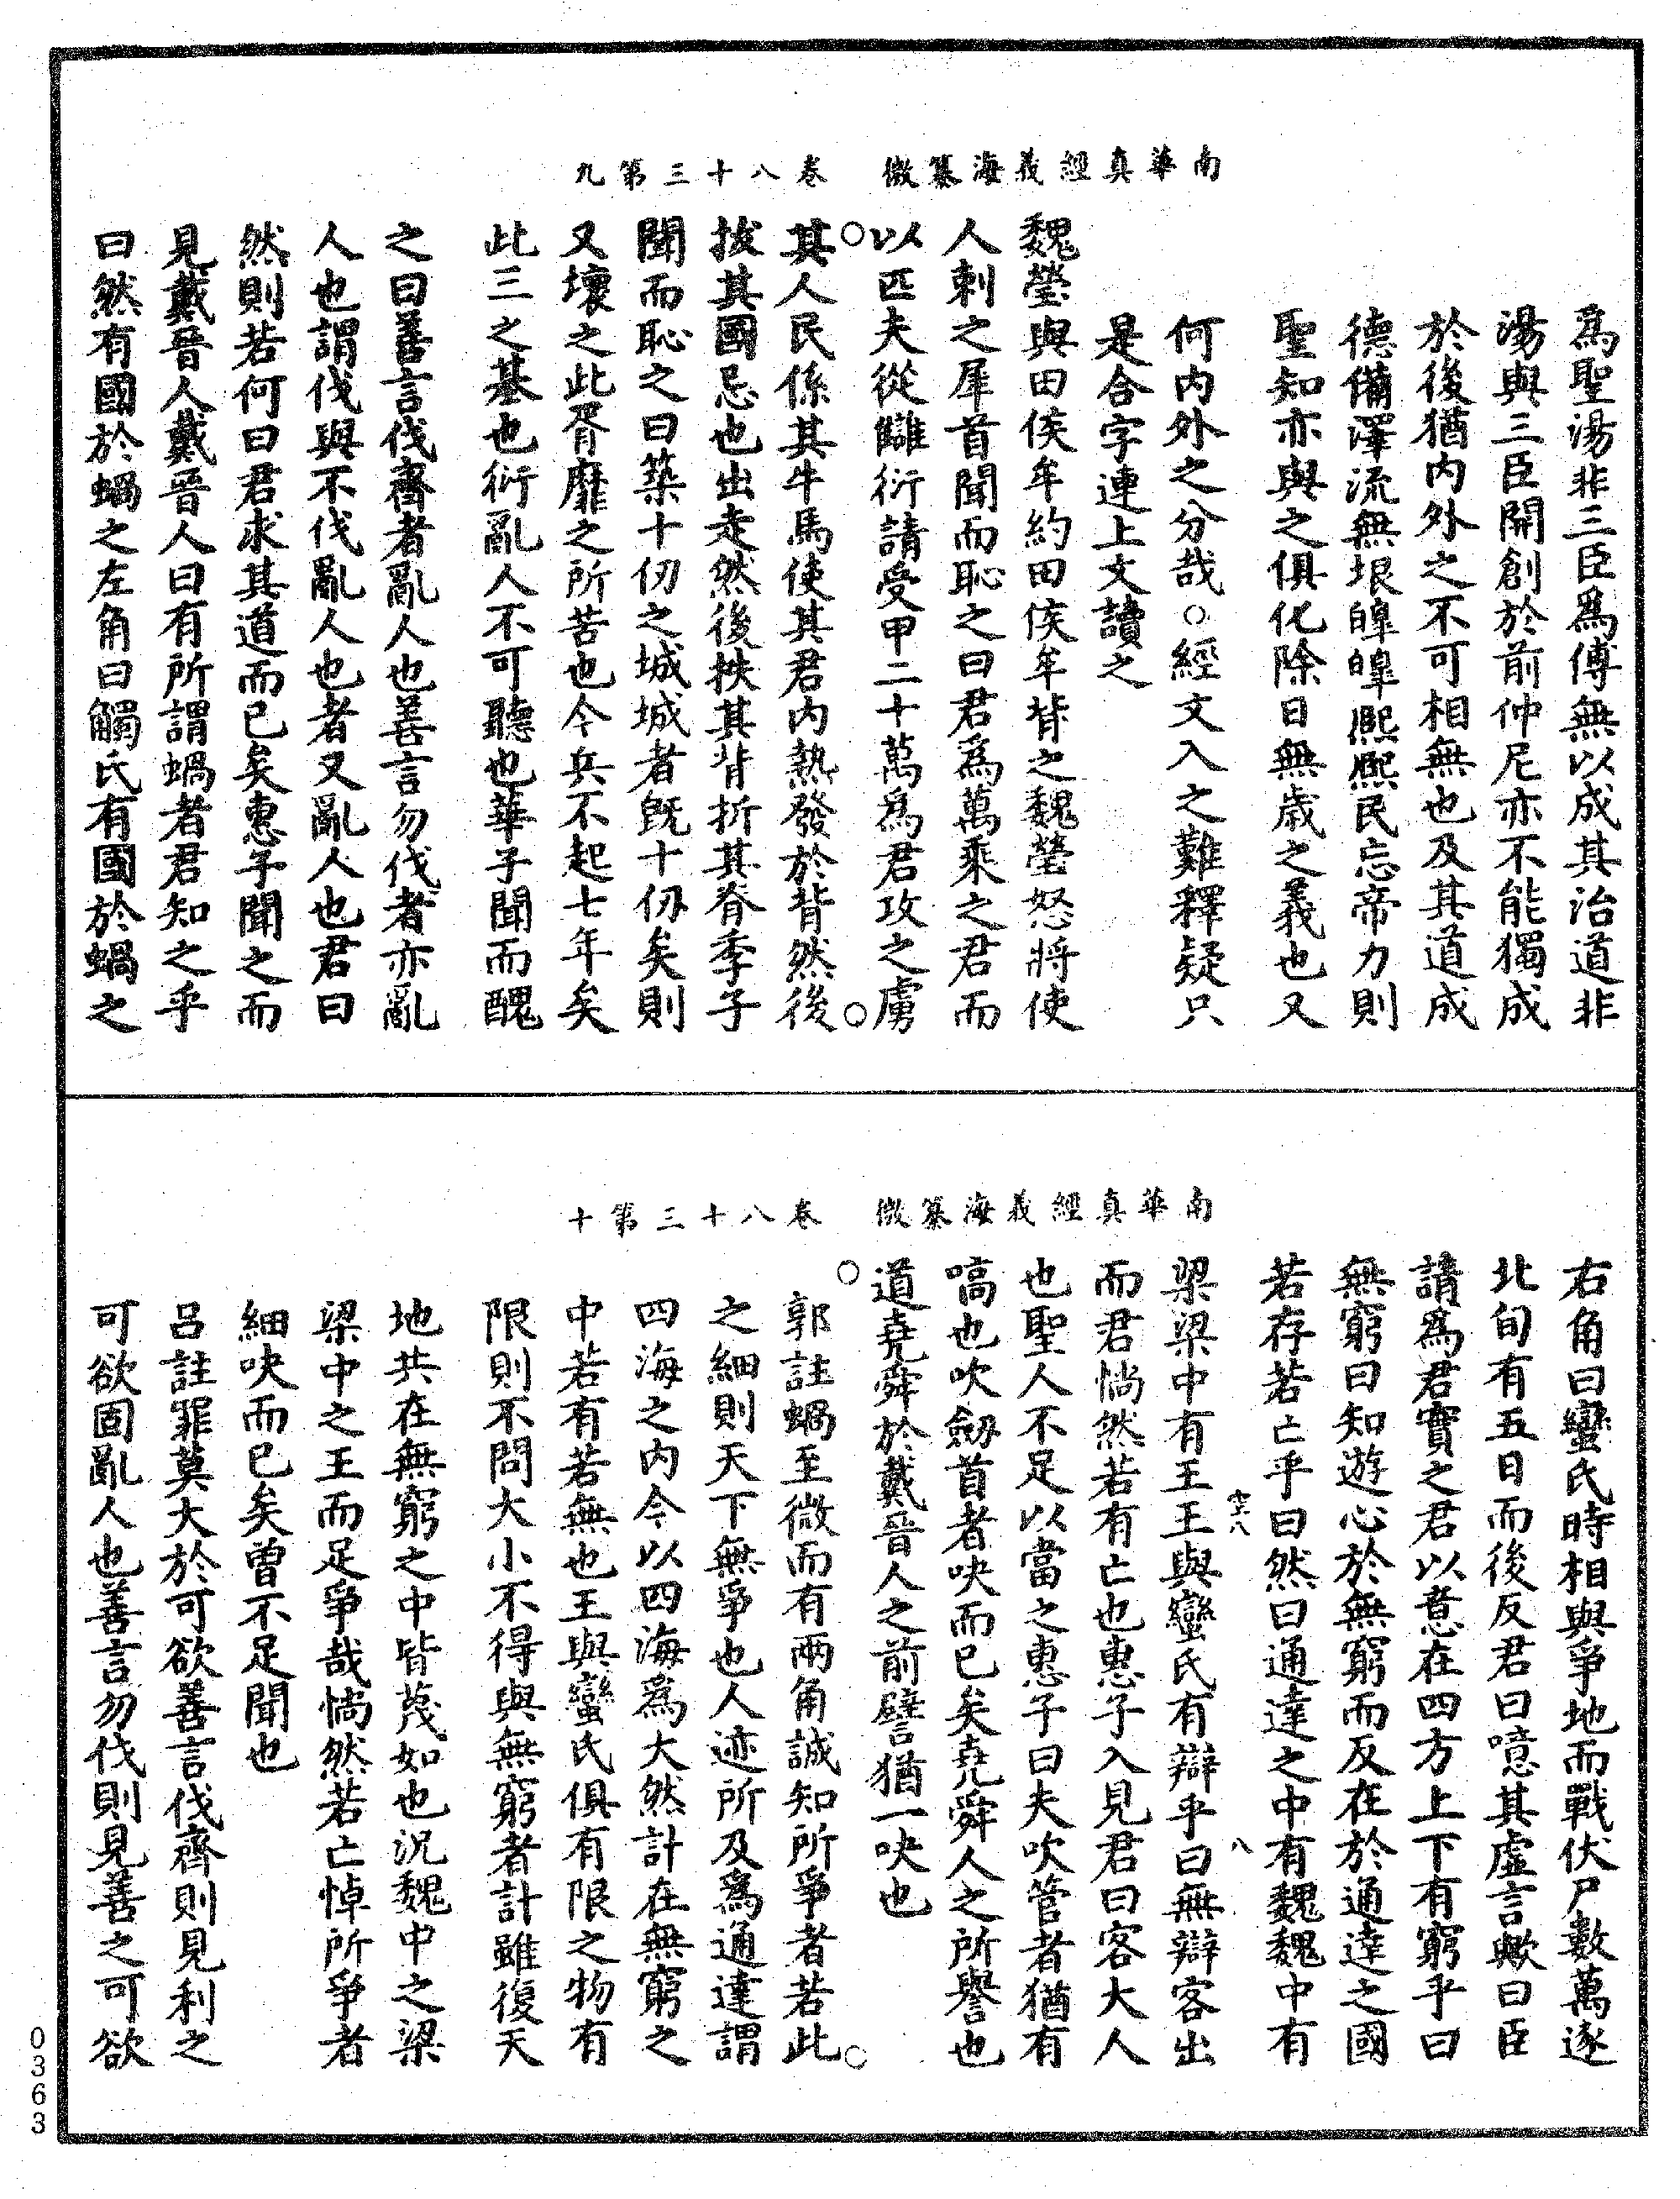 南華真經義海纂微　卷八十三第九
爲聖湯非三臣爲傅無以成其治道非
湯與三臣開創於前仲尼亦不能獨成
於後猶內外之不可相無也及其道成
德備澤流無垠皥皥熈熈民忘帝力則
聖知亦與之俱化除日無歲之義也又
何內外之分哉○經文入之難釋疑只
是合字連上文讀之
魏瑩與田侯牟約田侯牟背之魏瑩怒將使
人刺之犀首聞而恥之曰君爲萬乘之君而
以匹夫從讎衍請受甲二十萬爲君攻之虜
其人民係其牛馬使其君內熱發於背然後
拔其國忌也出走然後抶其背折其脊季子
聞而恥之曰築十仞之城城者旣十仞矣則
又壞之此胥靡之所苦也今兵不起七年矣
此三之基也衍亂人不可聽也華子聞而醜
之曰善言伐齊者亂人也善言勿伐者亦亂
人也謂伐與不伐亂人也者又亂人也君曰
然則若何曰君求其道而已矣惠子聞之而
見戴晉人戴晉人曰有所謂蝸者君知之乎
曰然有國於蝸之左角曰觸氏有國於蝸之
南華真經義海纂微　卷八十三第十
右角曰蠻氏時相與爭地而戰伏尸數萬逐
北旬有五日而後反君曰噫其虛言歟曰臣
請爲君實之君以意在四方上下有窮乎曰
無窮曰知遊心於無窮而反在於通達之國
若存若亡乎曰然曰通達之中有魏魏中有
八
梁梁中有王王與蠻氏有辯乎曰無辯客出
而君惝然若有亡也惠子入見君曰客大人
也聖人不足以當之惠子曰夫吹管者猶有
嗃也吹劒首者吷而已矣堯舜人之所譽也
道堯舜於戴晉人之前譬猶一吷也
郭註蝸至微而有兩角誠知所爭者若此
之細則天下無爭也人迹所及爲通達謂
四海之內今以四海爲大然計在無窮之
中若有若無也王與蠻氏俱有限之物有
限則不問大小不得與無窮者計雖復天
地共在無窮之中皆蔑如也況魏中之梁
梁中之王而足爭哉惝然若亡悼所爭者
細吷而已矣曾不足聞也
呂註罪莫大於可欲善言伐齊則見利之
可欲固亂人也善言勿伐則見善之可欲
0363